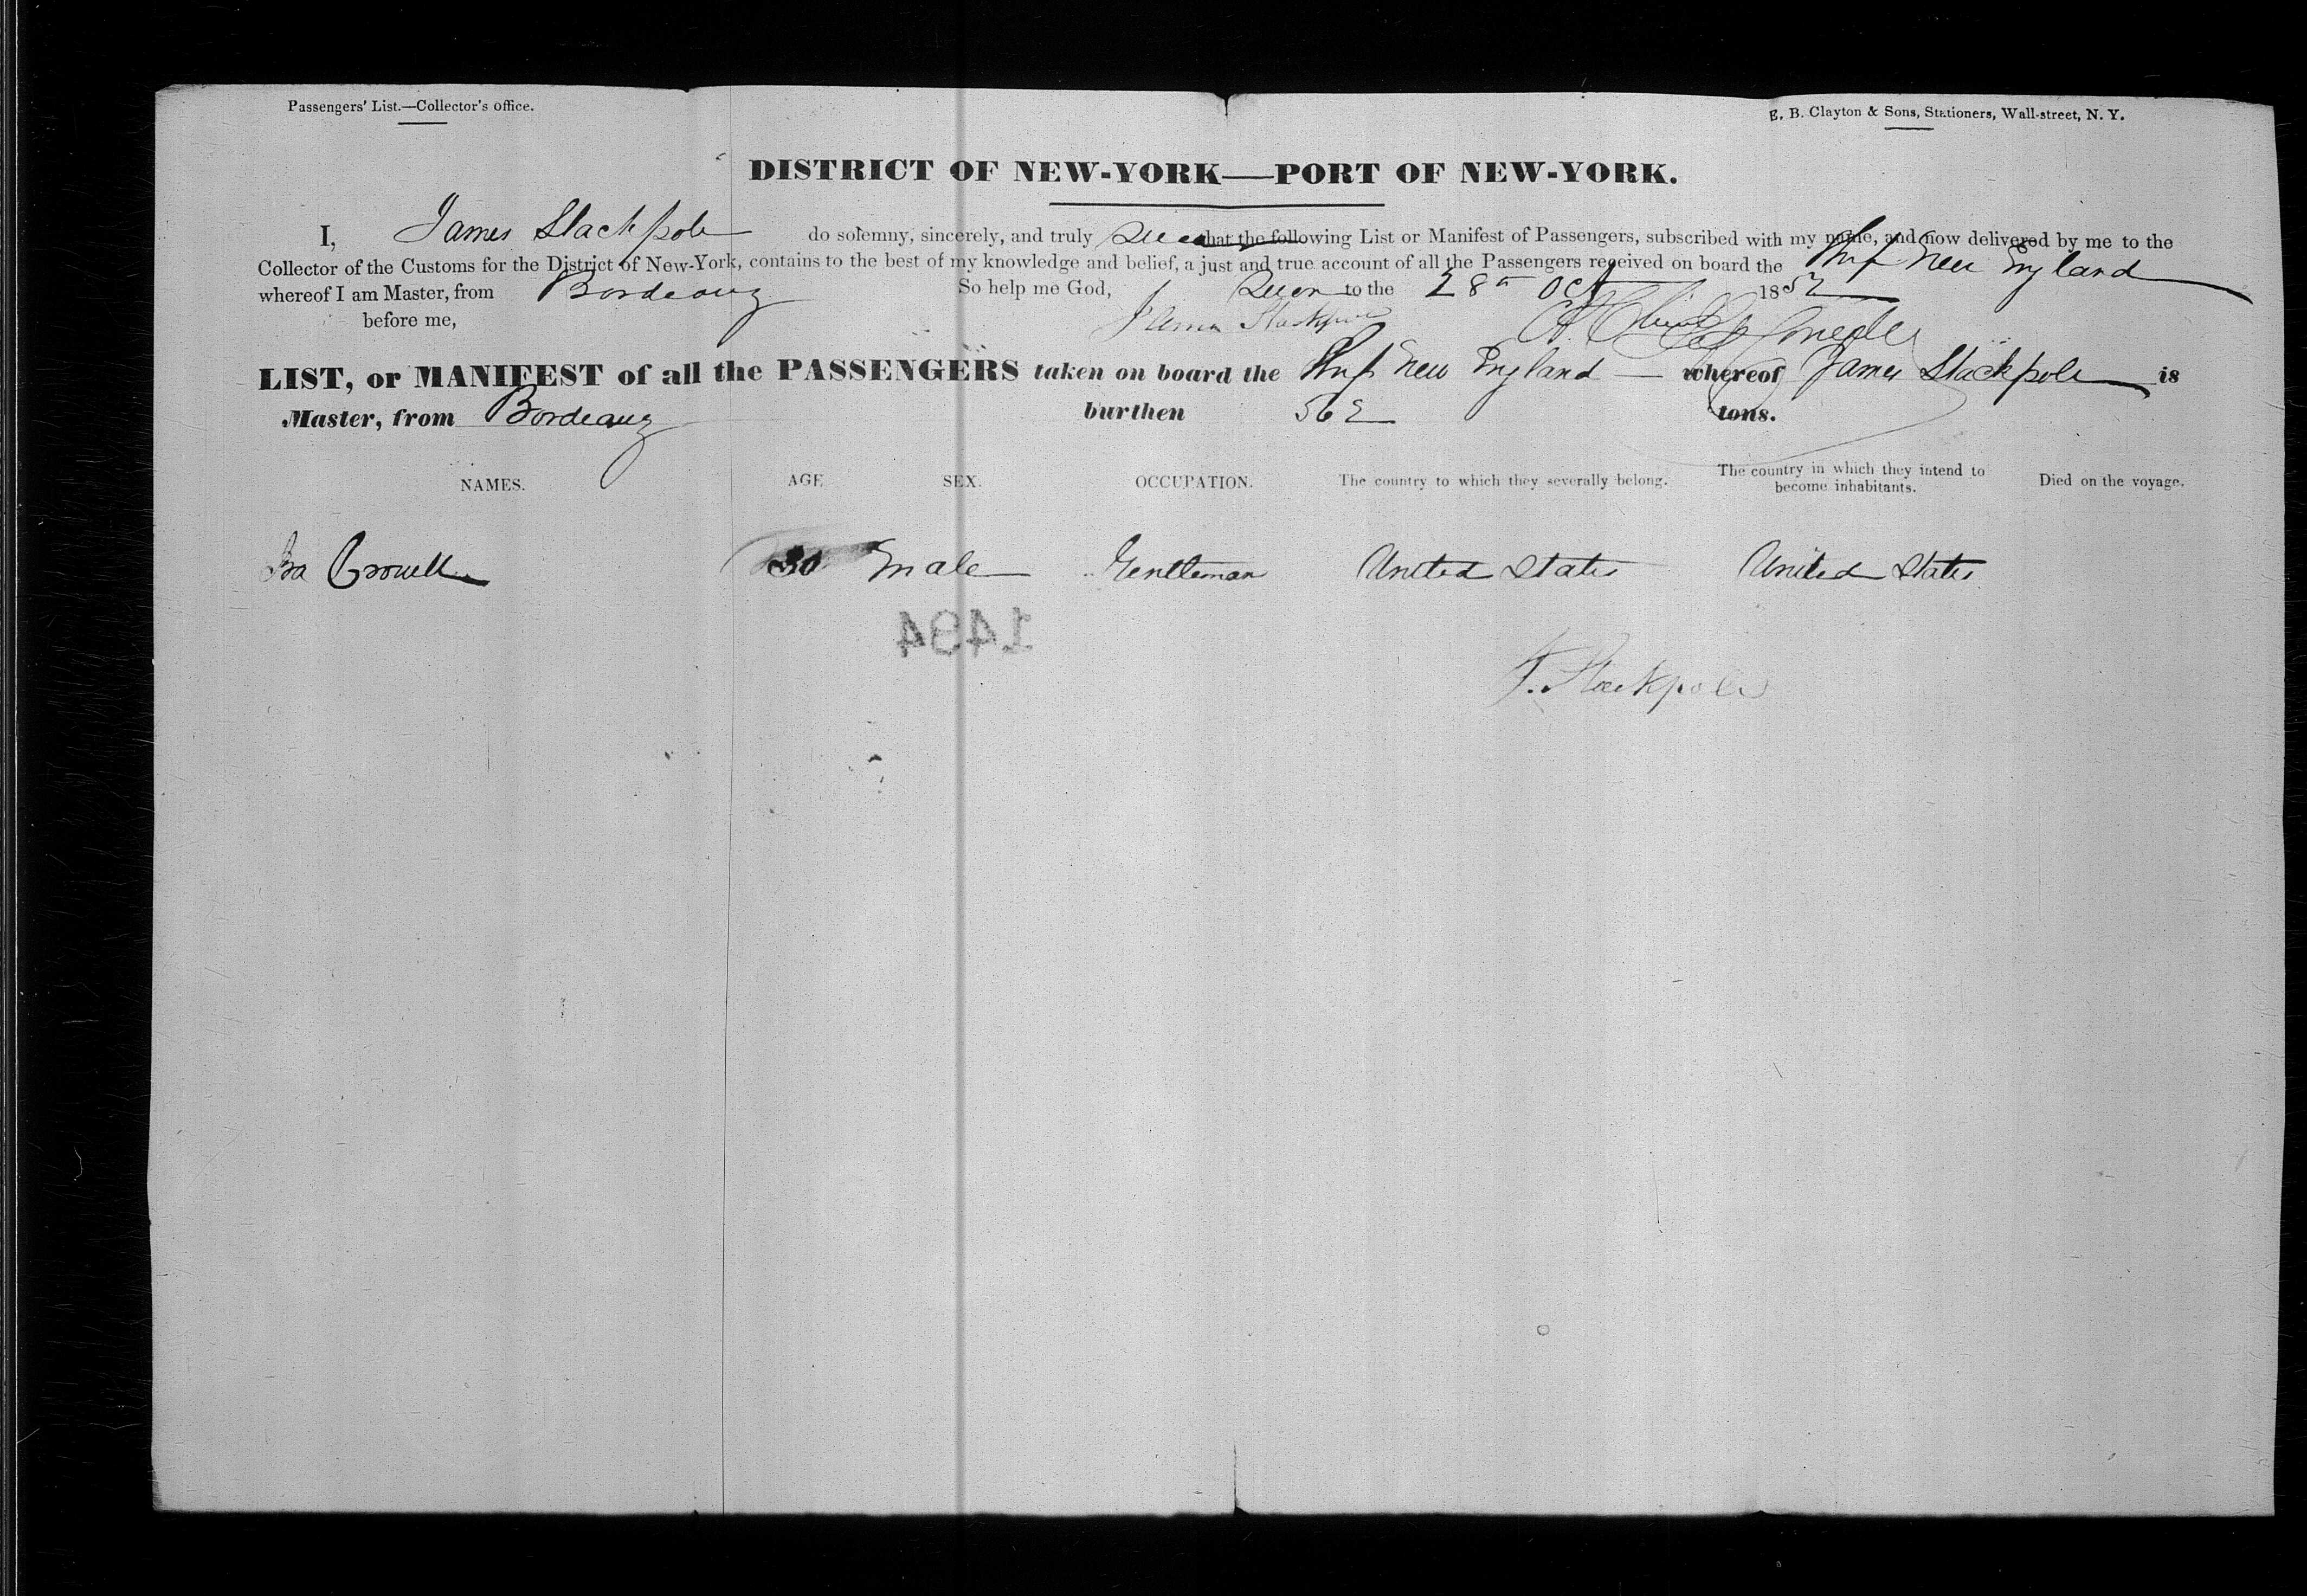 Passengers' List.—Collector's office.
E. B. Clayton & Sons, Stationers, Wall-street, N. Y.
DISTRICT OF NEW-YORK—PORT OF NEW-YORK.
I, James Stackpole do solemny, sincerely, and truly that the following List or Manifest of Passengers, subscribed with my name, and now delivered by me to the
Collector of the Customs for the District of New-York, contains to the best of my knowledge and belief, a just and true account of all the Passengers received on board the Ship New England
whereof I am Master, from Bordeaux So help me God, to the 28th Oct 1852
before me, James Stackpole
LIST, or MANIFEST of all the PASSENGERS taken on board the Ship New England whereof James Stackpole is
Master, from Bordeaux burthen 562 tons.
NAMES. AGE SEX. OCCUPATION. The country to which they severally belong. The country in which they intend to become inhabitants. Died on the voyage.
Crowell 30 Male Gentleman United States United States
1494
J. Stackpole